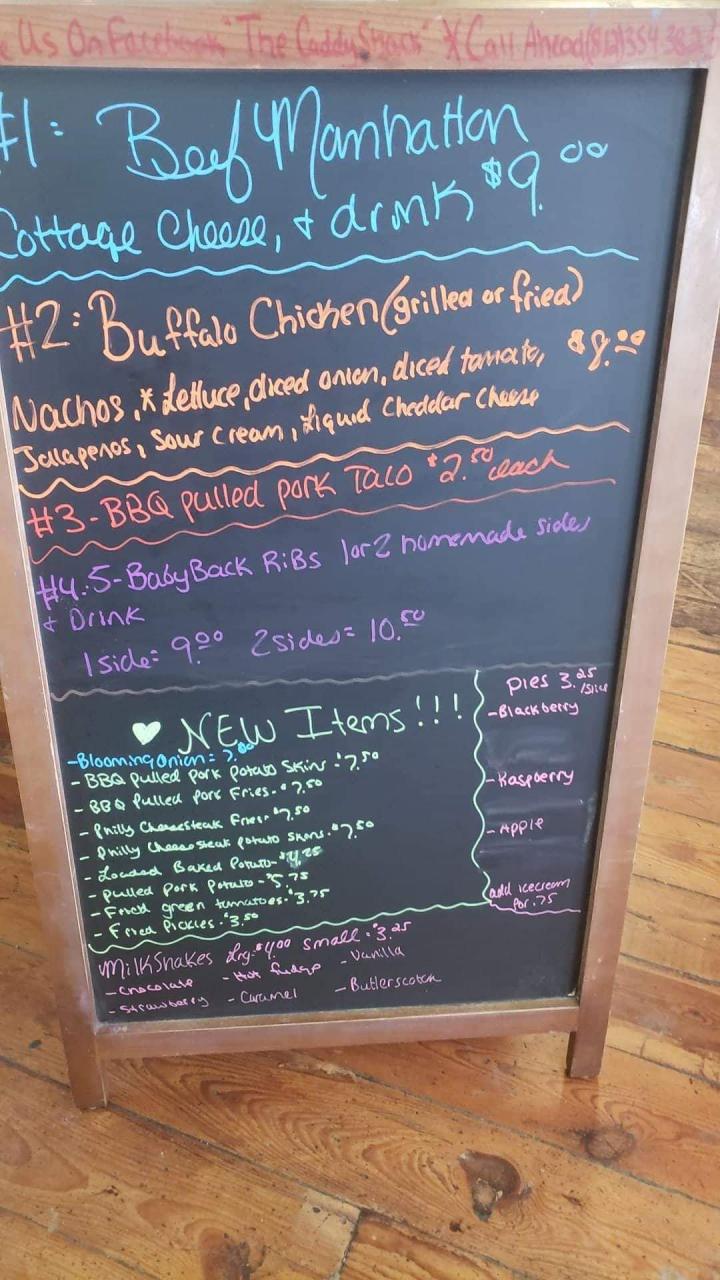 e Us On Facebook "The CaddyShack" *Call Ahead (812)354-382
#1: Beef Manhattan
Cottage Cheese, + drink $9.00
#2: Buffalo Chicken (grilled or fried)
Nachos, * Lettuce, diced onion, diced tomato, $8.00
Jalapenos, Sour Cream, Liquid Cheddar Cheese
#3-BBQ pulled pork Taco $2.50 each
#4.5-BabyBack RiBs 1or2 homemade sides
+ Drink
1side: 9.00 2sides= 10.50
NEW Items!!!
-Blooming Onion= 7.00
- BBQ pulled Pork Potato Skins-$7.50
- BBQ Pulled Pork Fries-$7.50
- Philly Cheesesteak Fries-$7.50
- Philly Cheesesteak potato Skins-$7.50
- Loaded Baked Potato-$4.25
- pulled Pork Potato-$5.75
- Fried green tomatoes-$3.75
- Fried Pickles-$3.50
pies 3.25
/slice
-Blackberry
-Raspberry
-Apple
add icecream
for .75
MilkShakes Lrg-$4.00 small-$3.25
-Chocolate -Hot fudge -Vanilla
-Strawberry -Caramel -Butterscotch